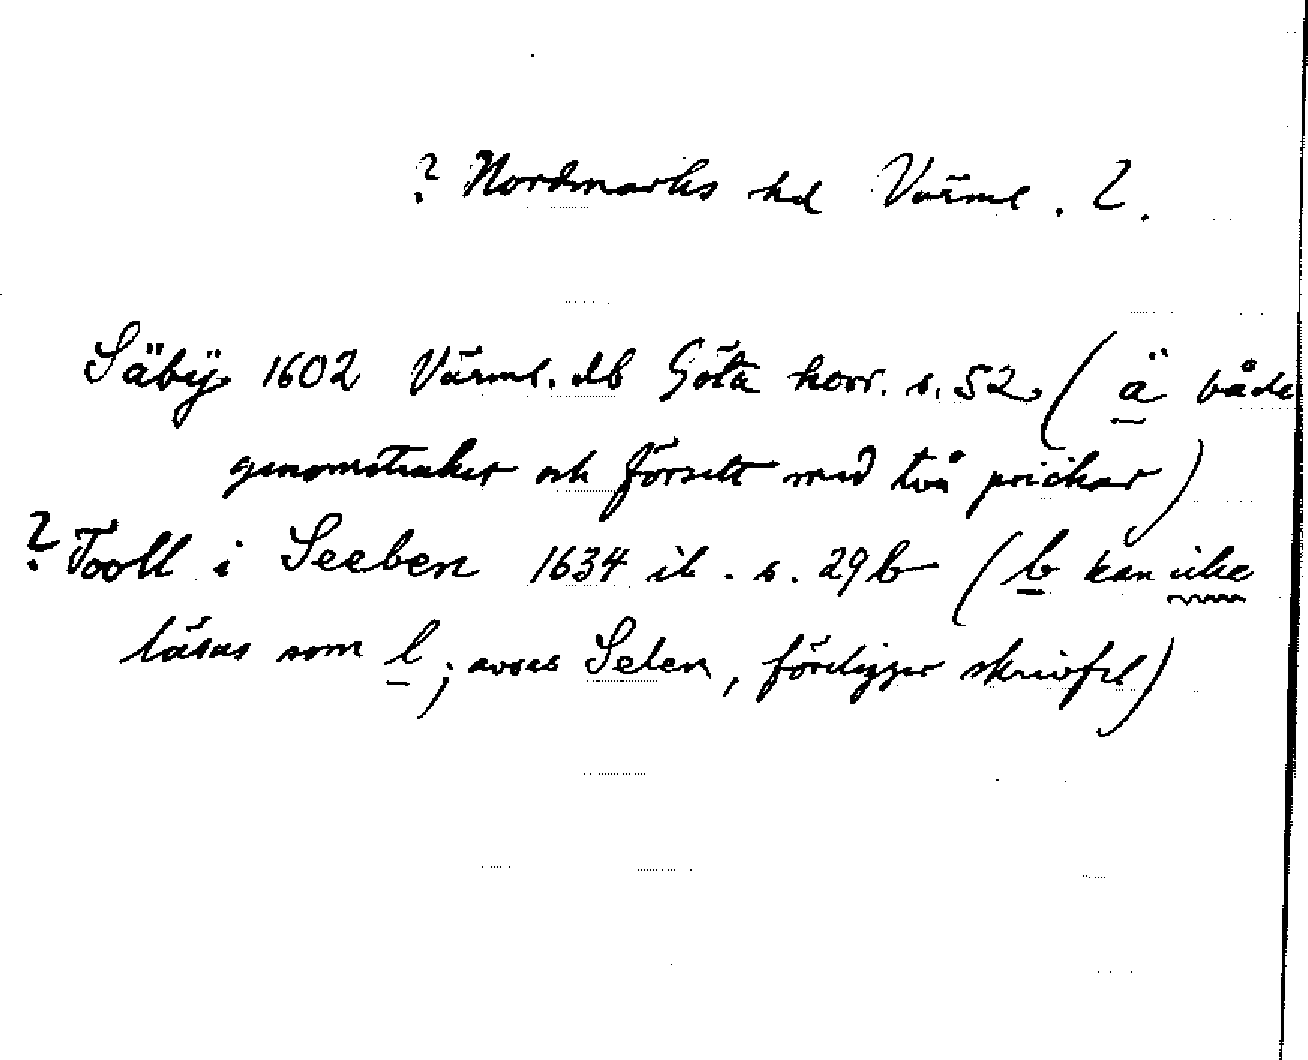 ? Nordmarks hd Värml. ?.
Säbÿ 1602 Värml. db Göta hovr. s. 52. (ä både
genomstruket och försett med två prickar)
? Tooll i Seeben 1634 ib. s. 29b (b kan icke
läsas som l; avses Selen, föreligger skrivfel)